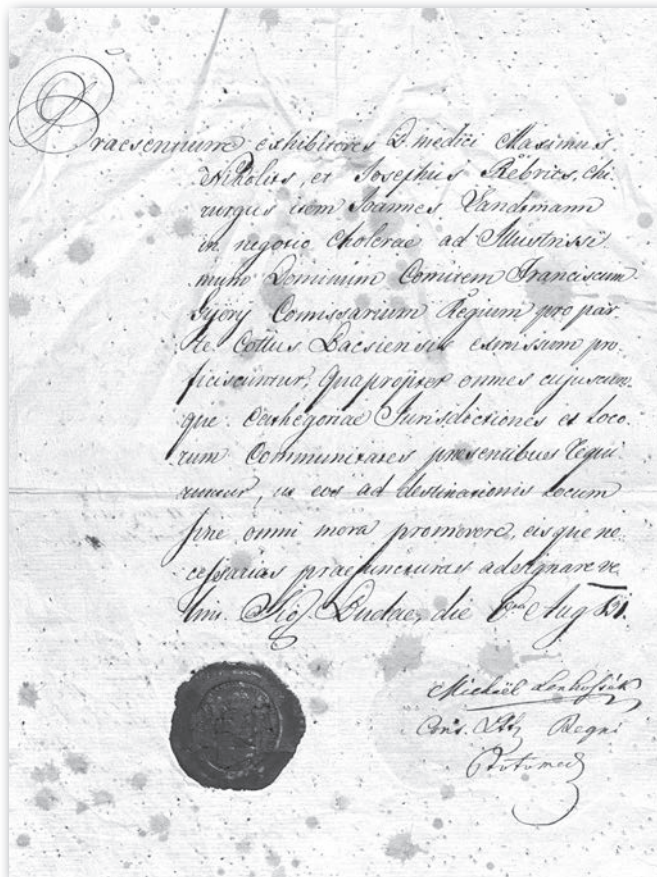 Praesentium exhibitores D. medici Maximus
Nikolits, et Josephus Rébrics, chi
rurgus item Joannes Landtmann
in negotio cholerae ad Illustrissi
mum Dominum Comitem Franciscum
Győry Comissarium Regium pro par
te Cottus Bacsiensis exmissum pro
ficiscuntur, quapropter omnes cujuscun
que Cathegoriae Jurisdictiones et loco
rum Communitates praesentibus requi
runtur, ut eos ad destinationis locum
sine omni mora promovere, eisque ne
cessarias praejuncturas adsignare ve
lint. Sig. Budae, die Aug 831.
Michaël Lenhossék
Cons. Regni
Protomed